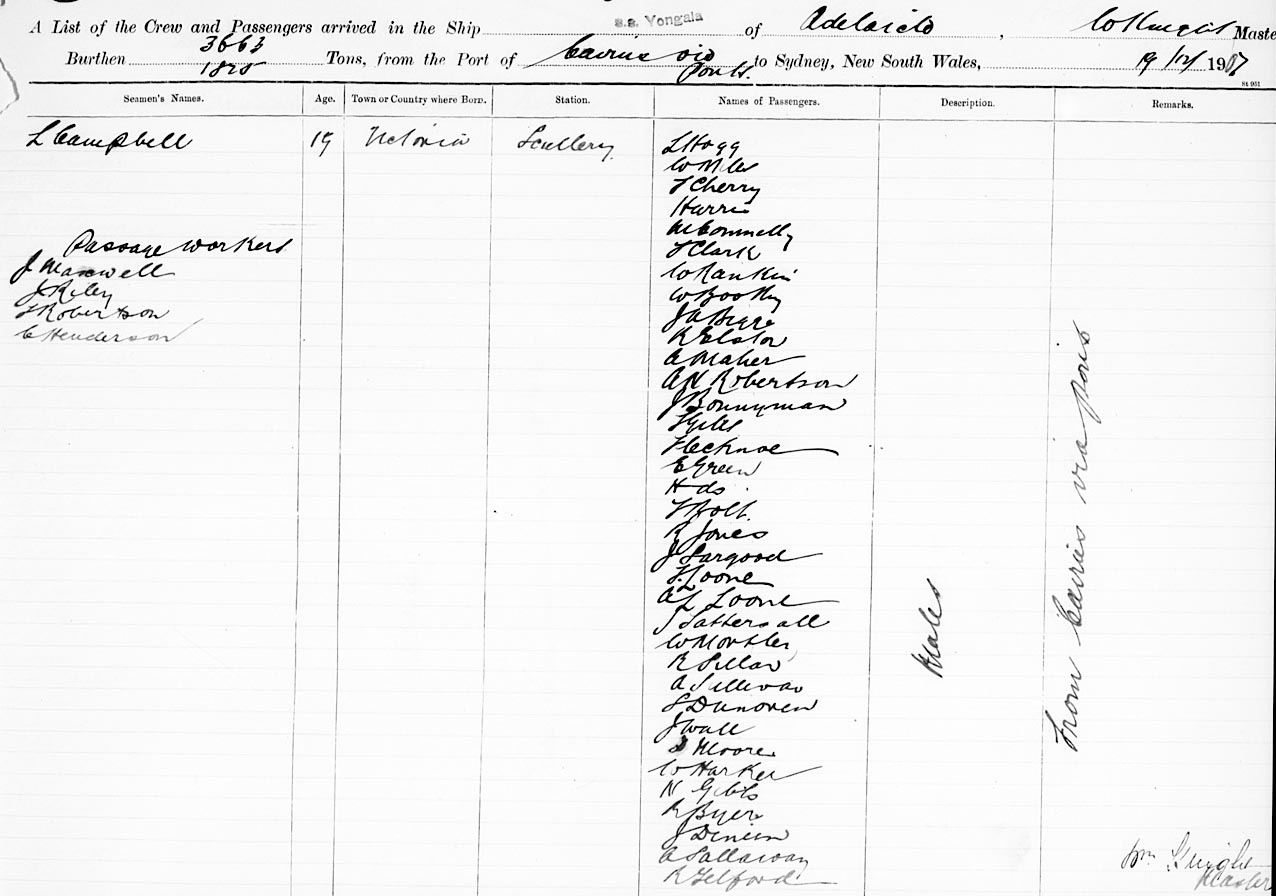 A List of the Crew and Passengers arrived in the Ship s.s. Yongala of Adelaide, W Knight Maste
Burthen 3663 1825 Tons, from the Port of Cairns via Ports to Sydney, New South Wales, 19/12/1907
St 961
Seamen's Names. Age. Town or Country where Born. Station. Names of Passengers. Description. Remarks.
L Campbell 19 Victoria Scullery
Passage Workers
J Maxwell
J Riley
Robertson
C Henderson
L Hogg
W Miles
T Cherry
Harris
Connelly
T Clark
W Rankin
W Boothy
J A Biggs
R Elston
A Maher
A N Robertson
J Bonnyman
Giles
Flecknoe
E Green
H do
T Bolt
R Jones
J Sargood
F. Loone
A L Loone
J Tattersall
W Mortler
R Pillar
A Sullivan
S Dunoven
J Wall
Moore
W Harker
N Gibbs
R Byers
J Dineen
A Sallaway
R Telford
Males
From Cairns via ports
Wm Knight
Master